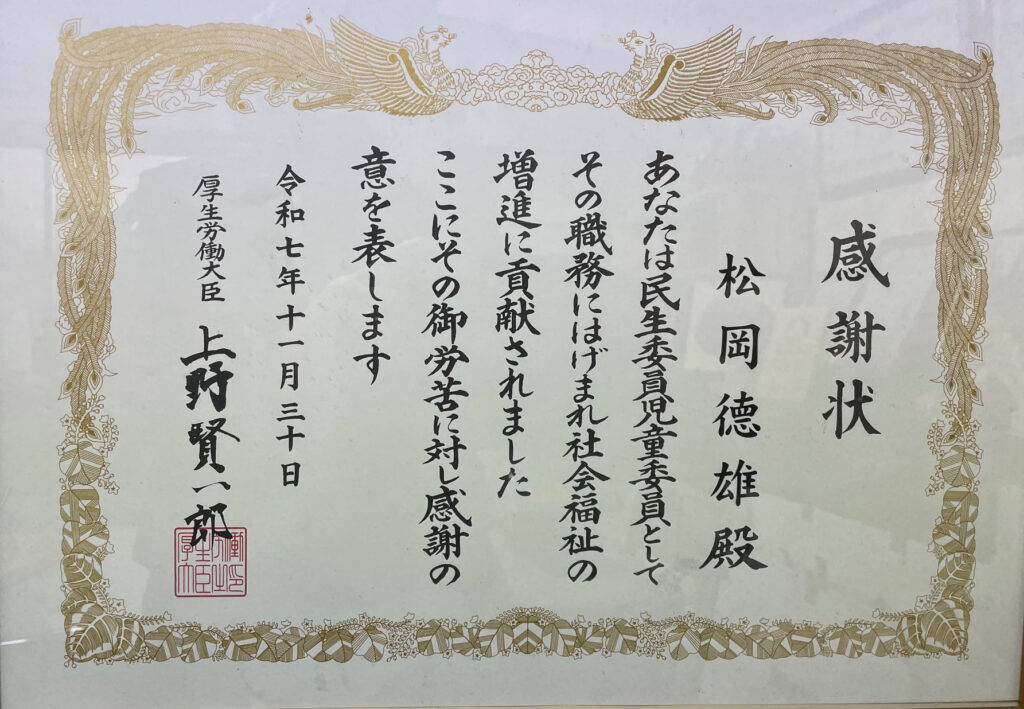 感謝状
松岡德雄殿
あなたは民生委員児童委員として
その職務にはげまれ社会福祉の
増進に貢献されました
ここにその御労苦に対し感謝の
意を表します
令和七年十一月三十日
厚生労働大臣 上野賢一郎